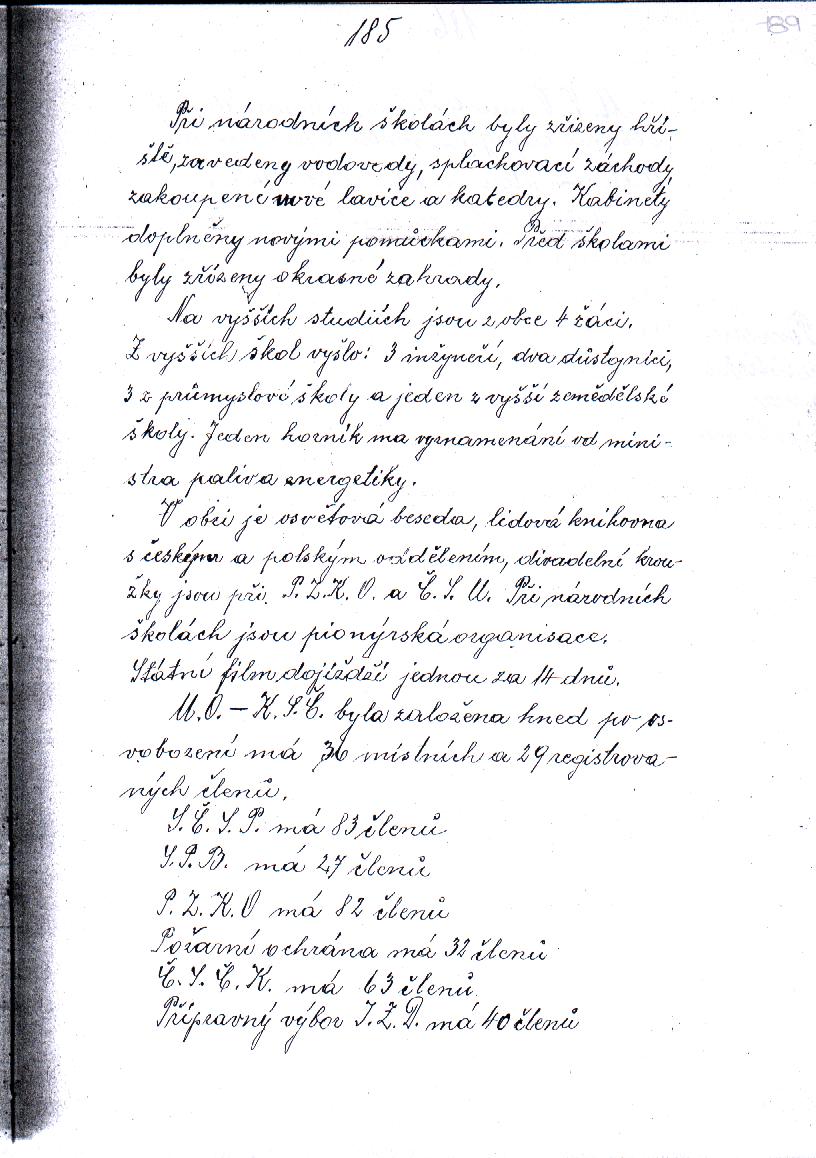 185
189
Při národních školách byly zřízeny hři-
ště, zavedeny vodovody, splachovací záchody,
zakoupené nové lavice a katedry. Kabinety
doplněny novými pomůckami. Před školami
byly zřízeny okrasné zahrady.
Na vyšších studiích jsou z obce 4 žáci.
Z vyšších škol vyšlo: 3 inžyneři, dva důstojníci,
3 z průmyslové školy a jeden z vyšší zemědělské
školy. Jeden horník ma vyznamenání od mini-
stra paliva energetiky.
V obci je osvětová beseda, lidová knihovna
s českým a polským oddělením, divadelní krou-
žky jsou při P.Z.K.O. a Č.S.M. Při národních
školách jsou pionýrská organisace.
Státní film dojíždží jednou za 14 dnů.
M.O. – K.S.Č. byla založena hned po os-
vobození má 36 místních a 29 registrova-
ných členů.
S.Č.S.P. má 83 členů
S.P.B. má 27 členů
P.Z.K.O má 82 členů
Požarní ochrána má 32 členů
Č.S.Č.K. má 63 členů
Přípravný výbor J.Z.D. má 40 členů